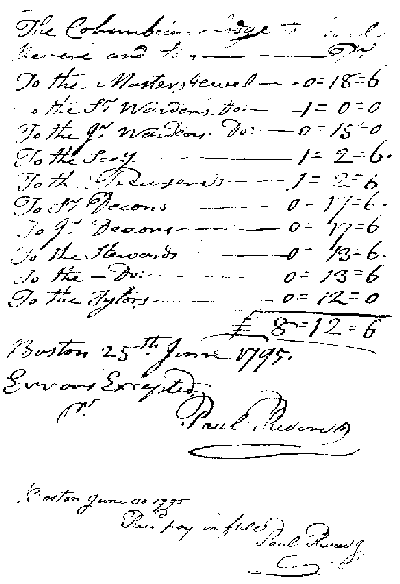 The Columbian Lodge to Paul
Revere and to — — — Dr
To the Masters Jewel — 0=18=6
the Sr Wardens Do: — 1=0=0
To the Jr Wardens Do: — 0=15=0
To the Secy — 1=2=6
To the Treasurers — 1=2=6
To Sr Deacons — 0=17=6
To Jr Deacons — 0=17=6
To the Stewards — 0=13=6
To the — Do: — 0=13=6
To the Tylors — 0=12=0
£ 8=12=6
Boston 25th June 1795.
Errors Excepted
Pr Paul Revere
Boston June 1795
Recd pay in full
Paul Revere